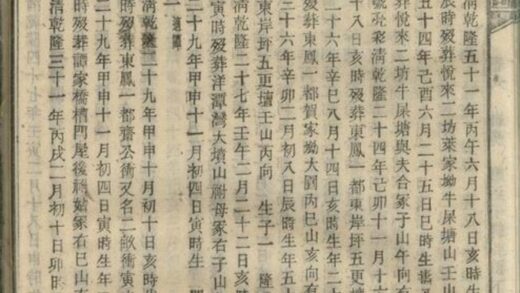 清乾隆五十一年丙午六月十八日亥時
辰時歿葬悅來二坊萊家坳牛屎塘山壬山
五十四年己酉六月二十五日巳時生
葬悅來二坊牛屎塘與夫合冡子山午向有
號 清乾隆二十四年己卯十一月十六
十八日亥時歿葬東鳳一都東岸坪五更塘
二十六年辛巳八月十四日亥時生年二十
歿葬東鳳一都賀家坳大劉丙巳山亥向有
三十六年辛卯二月初八日辰時生年五十
東岸坪五更塘壬山丙向 生子一 隆
清乾隆二十七年壬午二月二十二日亥時
寅時歿葬洋潭灣大墳山祔母冡右子山
二十九年甲申十一月初四日寅時生 歿
一 適譚
清乾隆二十九年甲申十月初十日亥時生
時歿葬東鳳一都齋公衝又名二畝衝寅
二十九年甲申十一月初四日寅時生年
時歿葬譚家橋槽門屋後終姑冡右巳山
清乾隆三十一年丙戌二月初十日卯時
清乾隆四十七年壬寅二月十八日寅時